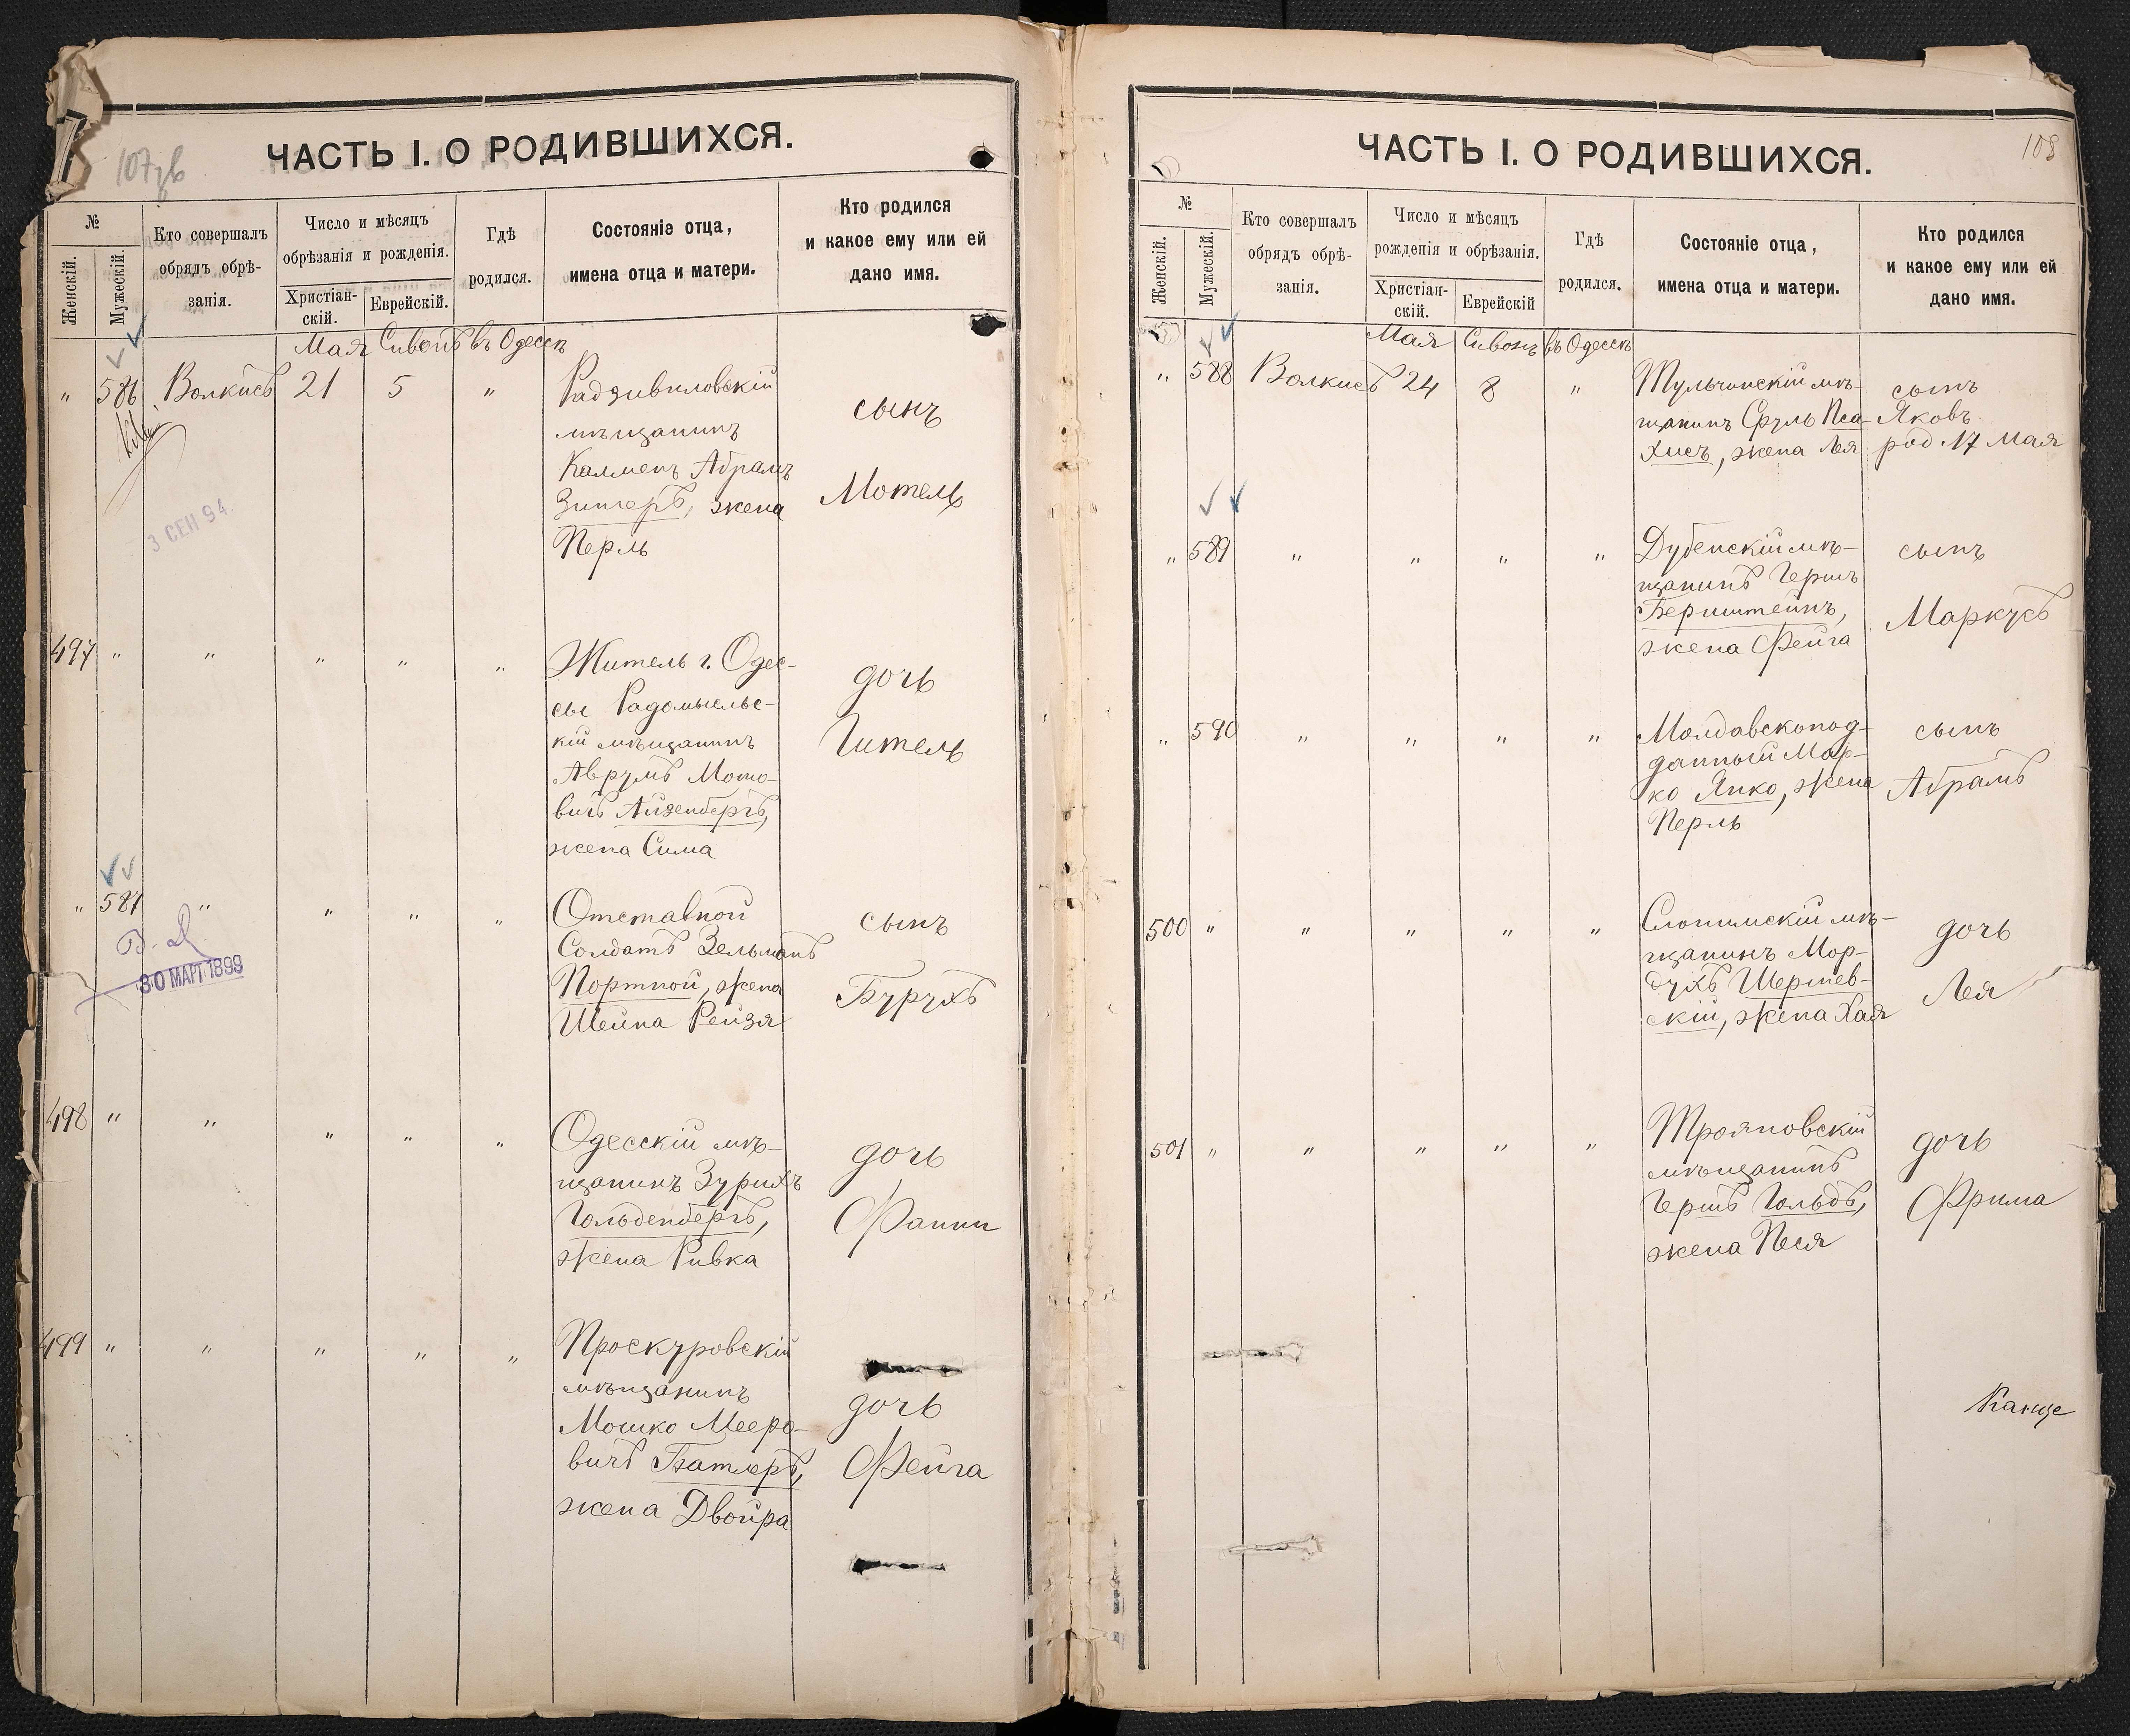 107 зв
ЧАСТЬ I. О РОДИВШИХСЯ.
№
Женскій.
Мужескій.
Кто совершалъ
обрядъ обрѣ-
занія.
Число и мѣсяцъ
обрѣзанія и рожденія.
Христіан-
скій.
Еврейскій.
Гдѣ
родился.
Состояніе отца,
имена отца и матери.
Кто родился
и какое ему или ей
дано имя.
Мая Сивонъ въ Одессѣ
" 586 Волкисъ 21 5 " Радзивиловскій
мѣщанинъ
Калменъ Абрамъ
Зингеръ, жена
Перль
сынъ
Мотель
3 СЕН 94.
497 " " " " " Житель г. Одес-
сы Радомысльс-
кій мѣщанинъ
Аврумъ Мото-
вичъ Айзенбергъ,
жена Сима
дочь
Гитель
" 587 " " " " Отставной
Солдатъ Зельманъ
Портной, жена
Шейна Рейзя
сынъ
Бурухъ
30 МАРТ. 1899
498 " " " " " Одесскій мѣ-
щанинъ Зурихъ
Гольденбергъ,
жена Ривка
дочь
Фанни
499 " " " " " Проскуровскій
мѣщанинъ
Мошко Мееро-
вичъ Батлеръ,
жена Двойра
дочь
Фейга
108
ЧАСТЬ I. О РОДИВШИХСЯ.
№
Женскій.
Мужескій.
Кто совершалъ
обрядъ обрѣ-
занія.
Число и мѣсяцъ
рожденія и обрѣзанія.
Христіан-
скій.
Еврейскій
Гдѣ
родился.
Состояніе отца,
имена отца и матери.
Кто родился
и какое ему или ей
дано имя.
Мая Сивонъ въ Одессѣ
" 588 Волкисъ 24 8 " Тульчинскій мѣ-
щанинъ Сруль Пса-
хисъ, жена Лея
сынъ
Яковъ
род. 17 Мая
" 589 " " " " Дубенскій мѣ-
щанинъ Гершъ
Бернштейнъ,
жена Фейга
сынъ
Маркусъ
" 590 " " " " Молдавскопод-
данный Мор-
ко Янко, жена
Перль
сынъ
Абрамъ
500 " " " " " Слонимскій мѣ-
щанинъ Мор-
духъ Шершев-
скій, жена Хая
дочь
Лея
501 " " " " " Трояновскій
мѣщанинъ
Гершъ Гольдъ,
жена Песя
дочь
Фрима